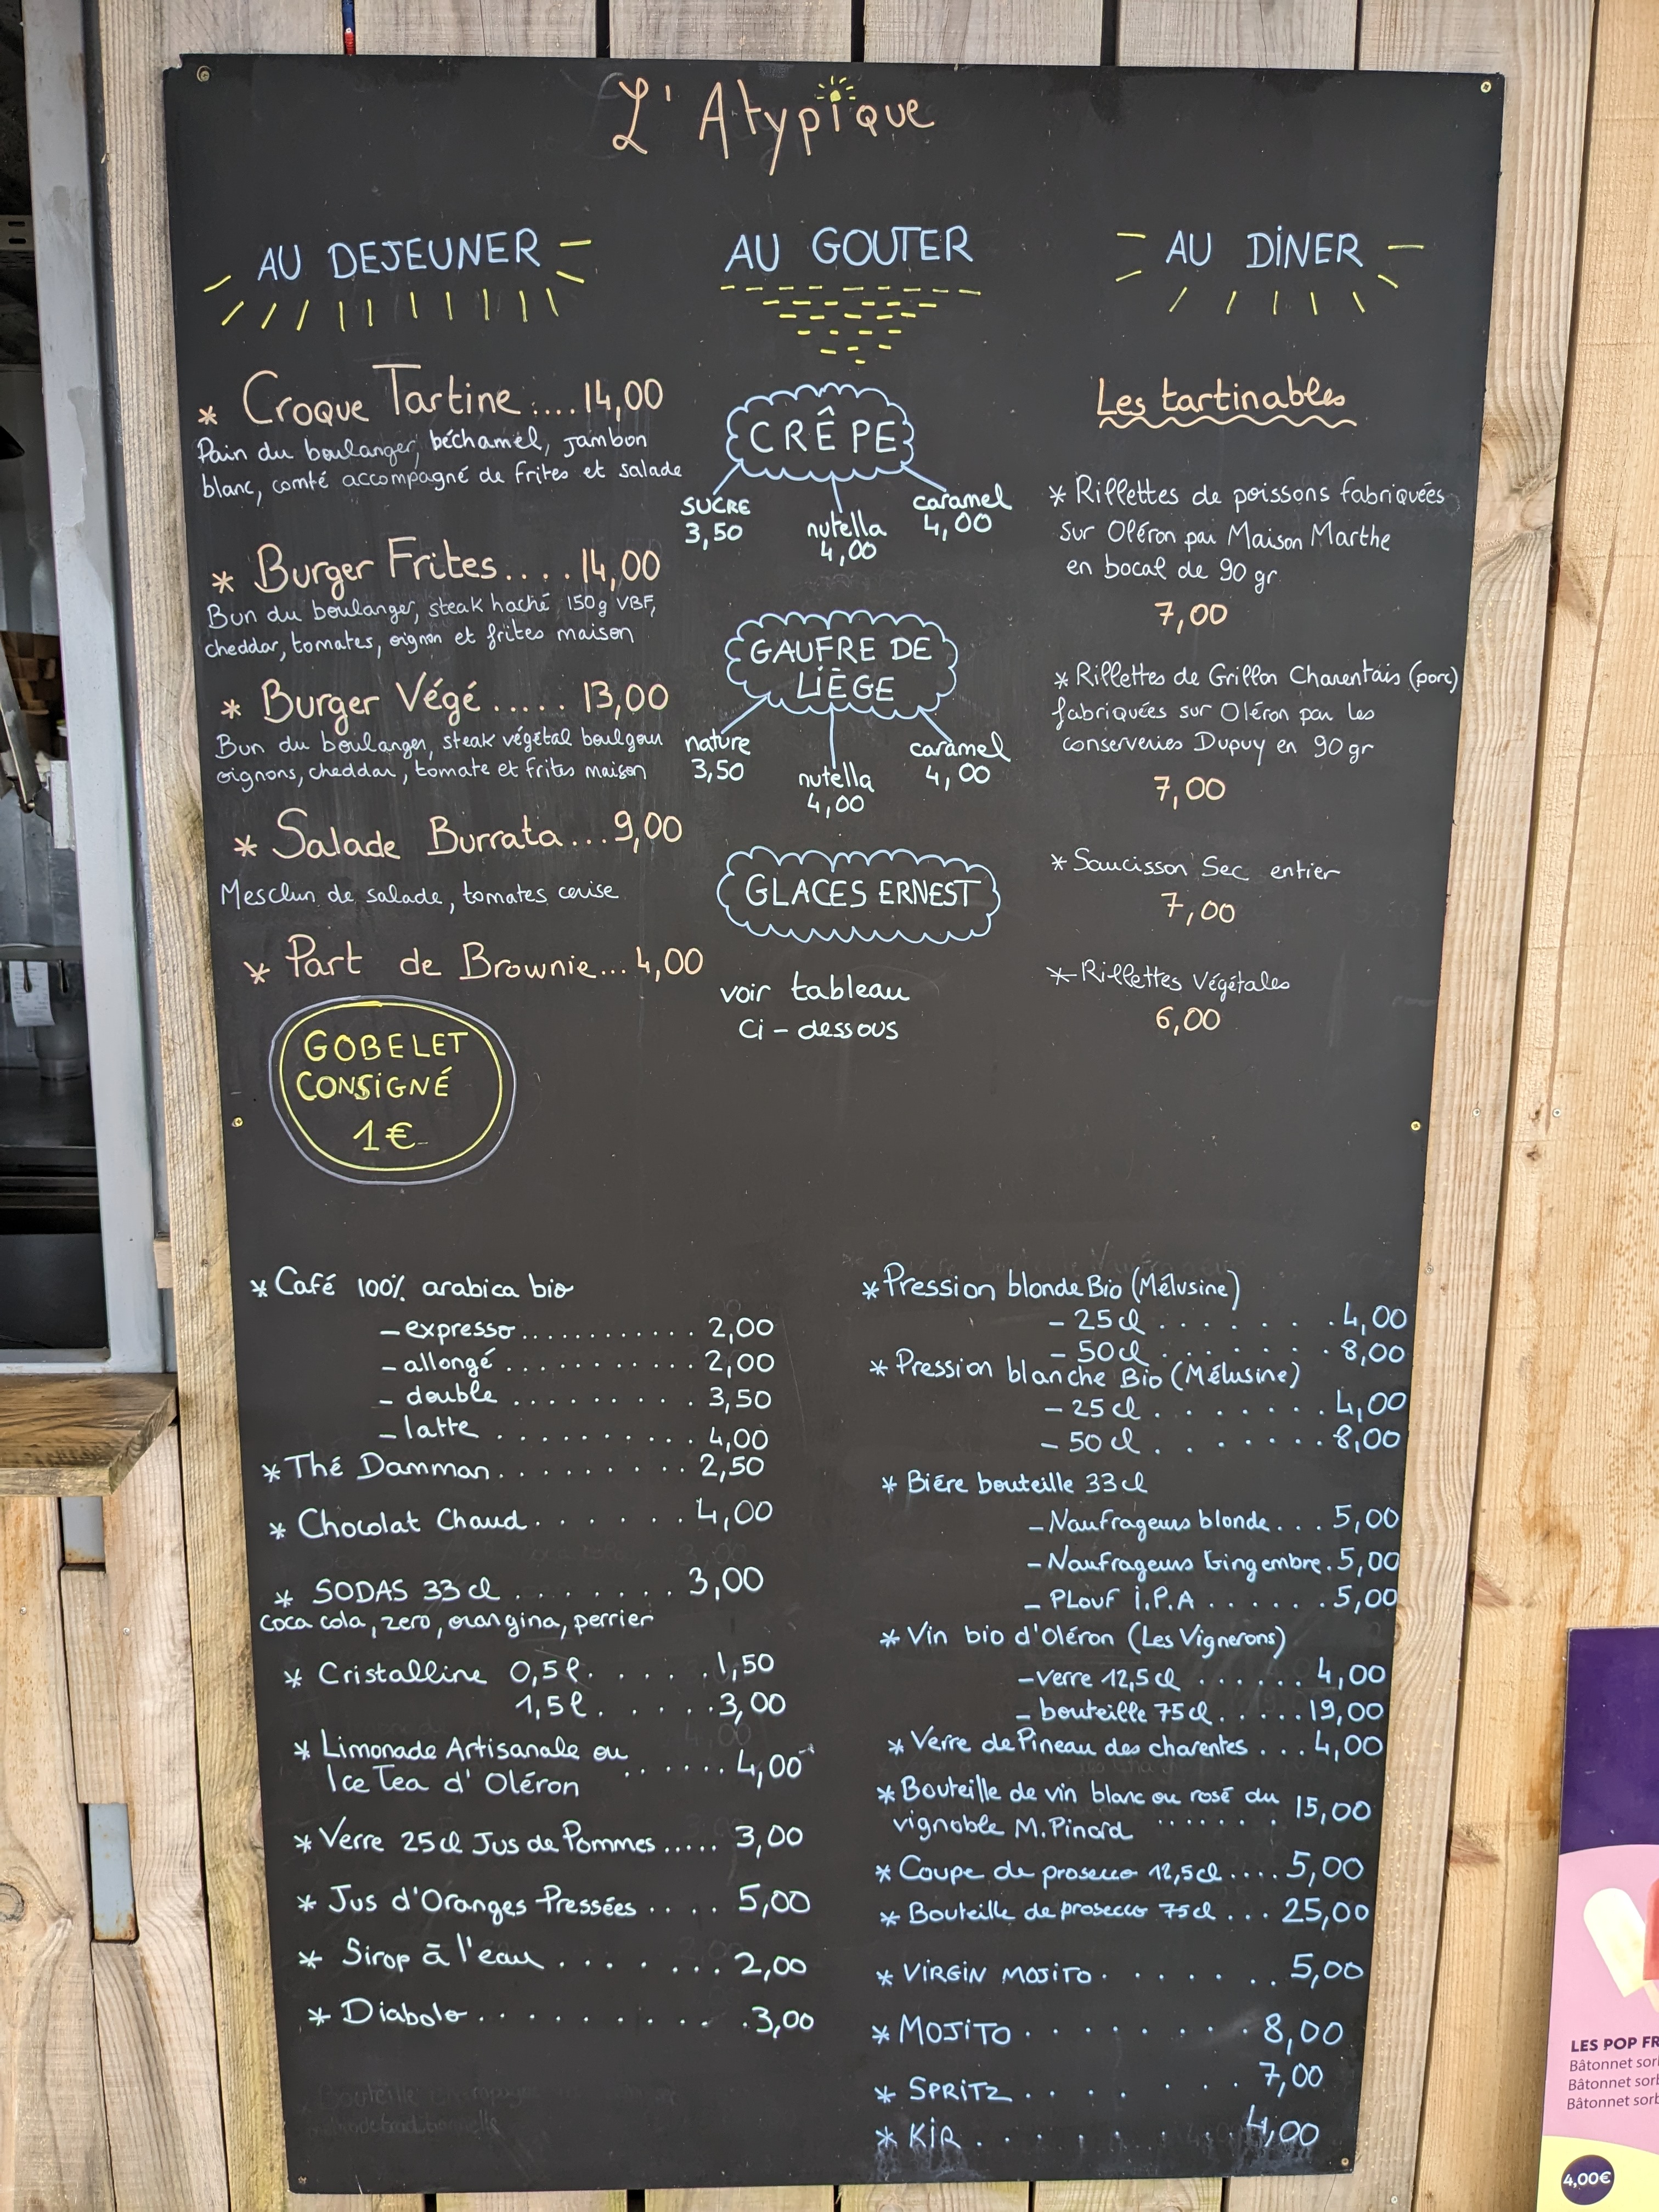 L'Atypique
AU DEJEUNER
* Croque Tartine .... 14,00
Pain du boulanger, béchamel, jambon
blanc, comté accompagné de frites et salade
* Burger Frites.... 14,00
Bun du boulanger, steak haché 150g VBF,
cheddar, tomates, oignon et frites maison
* Burger Végé..... 13,00
Bun du boulanger, steak végétal boulgour
oignons, cheddar, tomate et frites maison
* Salade Burrata...9,00
Mesclun de salade, tomates cerise
* Part de Brownie...4,00
GOBELET
CONSIGNÉ
1€
AU GOUTER
CRÊPE
SUCRE
3,50
nutella
4,00
caramel
4,00
GAUFRE DE
LIÈGE
nature
3,50
nutella
4,00
caramel
4,00
GLACES ERNEST
voir tableau
Ci-dessous
AU DÎNER
Les tartinables
* Rillettes de poissons fabriquées
sur Oléron par Maison Marthe
en bocal de 90 gr
7,00
* Rillettes de Grillon Charentais (porc)
fabriquées sur Oléron par les
conserveries Dupuy en 90gr
7,00
* Saucisson Sec entier
7,00
* Rillettes Végétales
6,00
* Café 100% arabica bio
- expresso............ 2,00
- allongé........... 2,00
- double.......... 3,50
- latte.......... 4,00
* Thé Damman......... 2,50
* Chocolat Chaud...... 4,00
* SODAS 33cl....... 3,00
coca cola, zero, orangina, perrier
* Cristalline 0,5l..... 1,50
1,5l..... 3,00
* Limonade Artisanale ou
Ice Tea d'Oléron ...... 4,00
* Verre 25cl Jus de Pommes..... 3,00
* Jus d'Oranges Pressées.... 5,00
* Sirop à l'eau....... 2,00
* Diabolo.......... 3,00
* Pression blonde Bio (Mélusine)
- 25cl....... 4,00
- 50cl....... 8,00
* Pression blanche Bio (Mélusine)
- 25cl....... 4,00
- 50cl....... 8,00
* Biére bouteille 33cl
- Naufrageurs blonde... 5,00
- Naufrageurs Gingembre. 5,00
- PLOUF I.P.A...... 5,00
* Vin bio d'Oléron (Les Vignerons)
- verre 12,5cl...... 4,00
- bouteille 75cl..... 19,00
* Verre de Pineau des charentes... 4,00
* Bouteille de vin blanc ou rosé du
vignoble M.Pinard ...... 15,00
* Coupe de prosecco 12,5cl.... 5,00
* Bouteille de prosecco 75cl... 25,00
* VIRGIN MOJITO....... 5,00
* MOJITO........ 8,00
* SPRITZ...... 7,00
* KIR....... 4,00
LES POP FR
Bâtonnet sor
Bâtonnet sorb
Bâtonnet sorb
4,00€